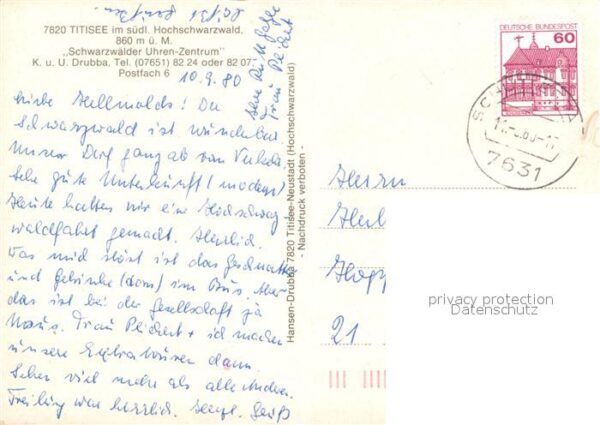 7820 TITISEE im südl. Hochschwarzwald,
860 m ü. M.
„Schwarzwälder Uhren-Zentrum"
K. u. U. Drubba, Tel. (07651) 82 24 oder 82 07
Postfach 6
10.9.80
Liebe Hellwolds! Der
Schwarzwald ist wunderbar
Unser Dorf ganz ab vom Verkehr
Sehr gute Unterkunft/modern
Heute hatten wir eine Hochschwarz-
waldfahrt gemacht. Herrlich.
Was mich stört ist das
und im Bus. Aber
das ist bei der Gesellschaft ja
Frau Peichert + ich machen
unsere Extratouren dann.
Sehen viel mehr als alle Anderen.
Freiburg war herrlich. Herzl. Gruß
Frau Peichert
Hansen-Drubba 7820 Titisee-Neustadt (Hochschwarzwald)
- Nachdruck verboten -
DEUTSCHE BUNDESPOST
60
7631
Herrn
21
privacy protection
Datenschutz